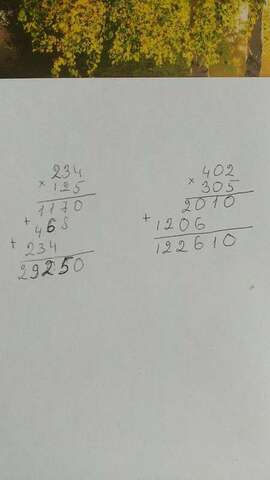 234
× 125
1170
+ 468
+ 234
29250
402
× 305
2010
+ 1206
122610